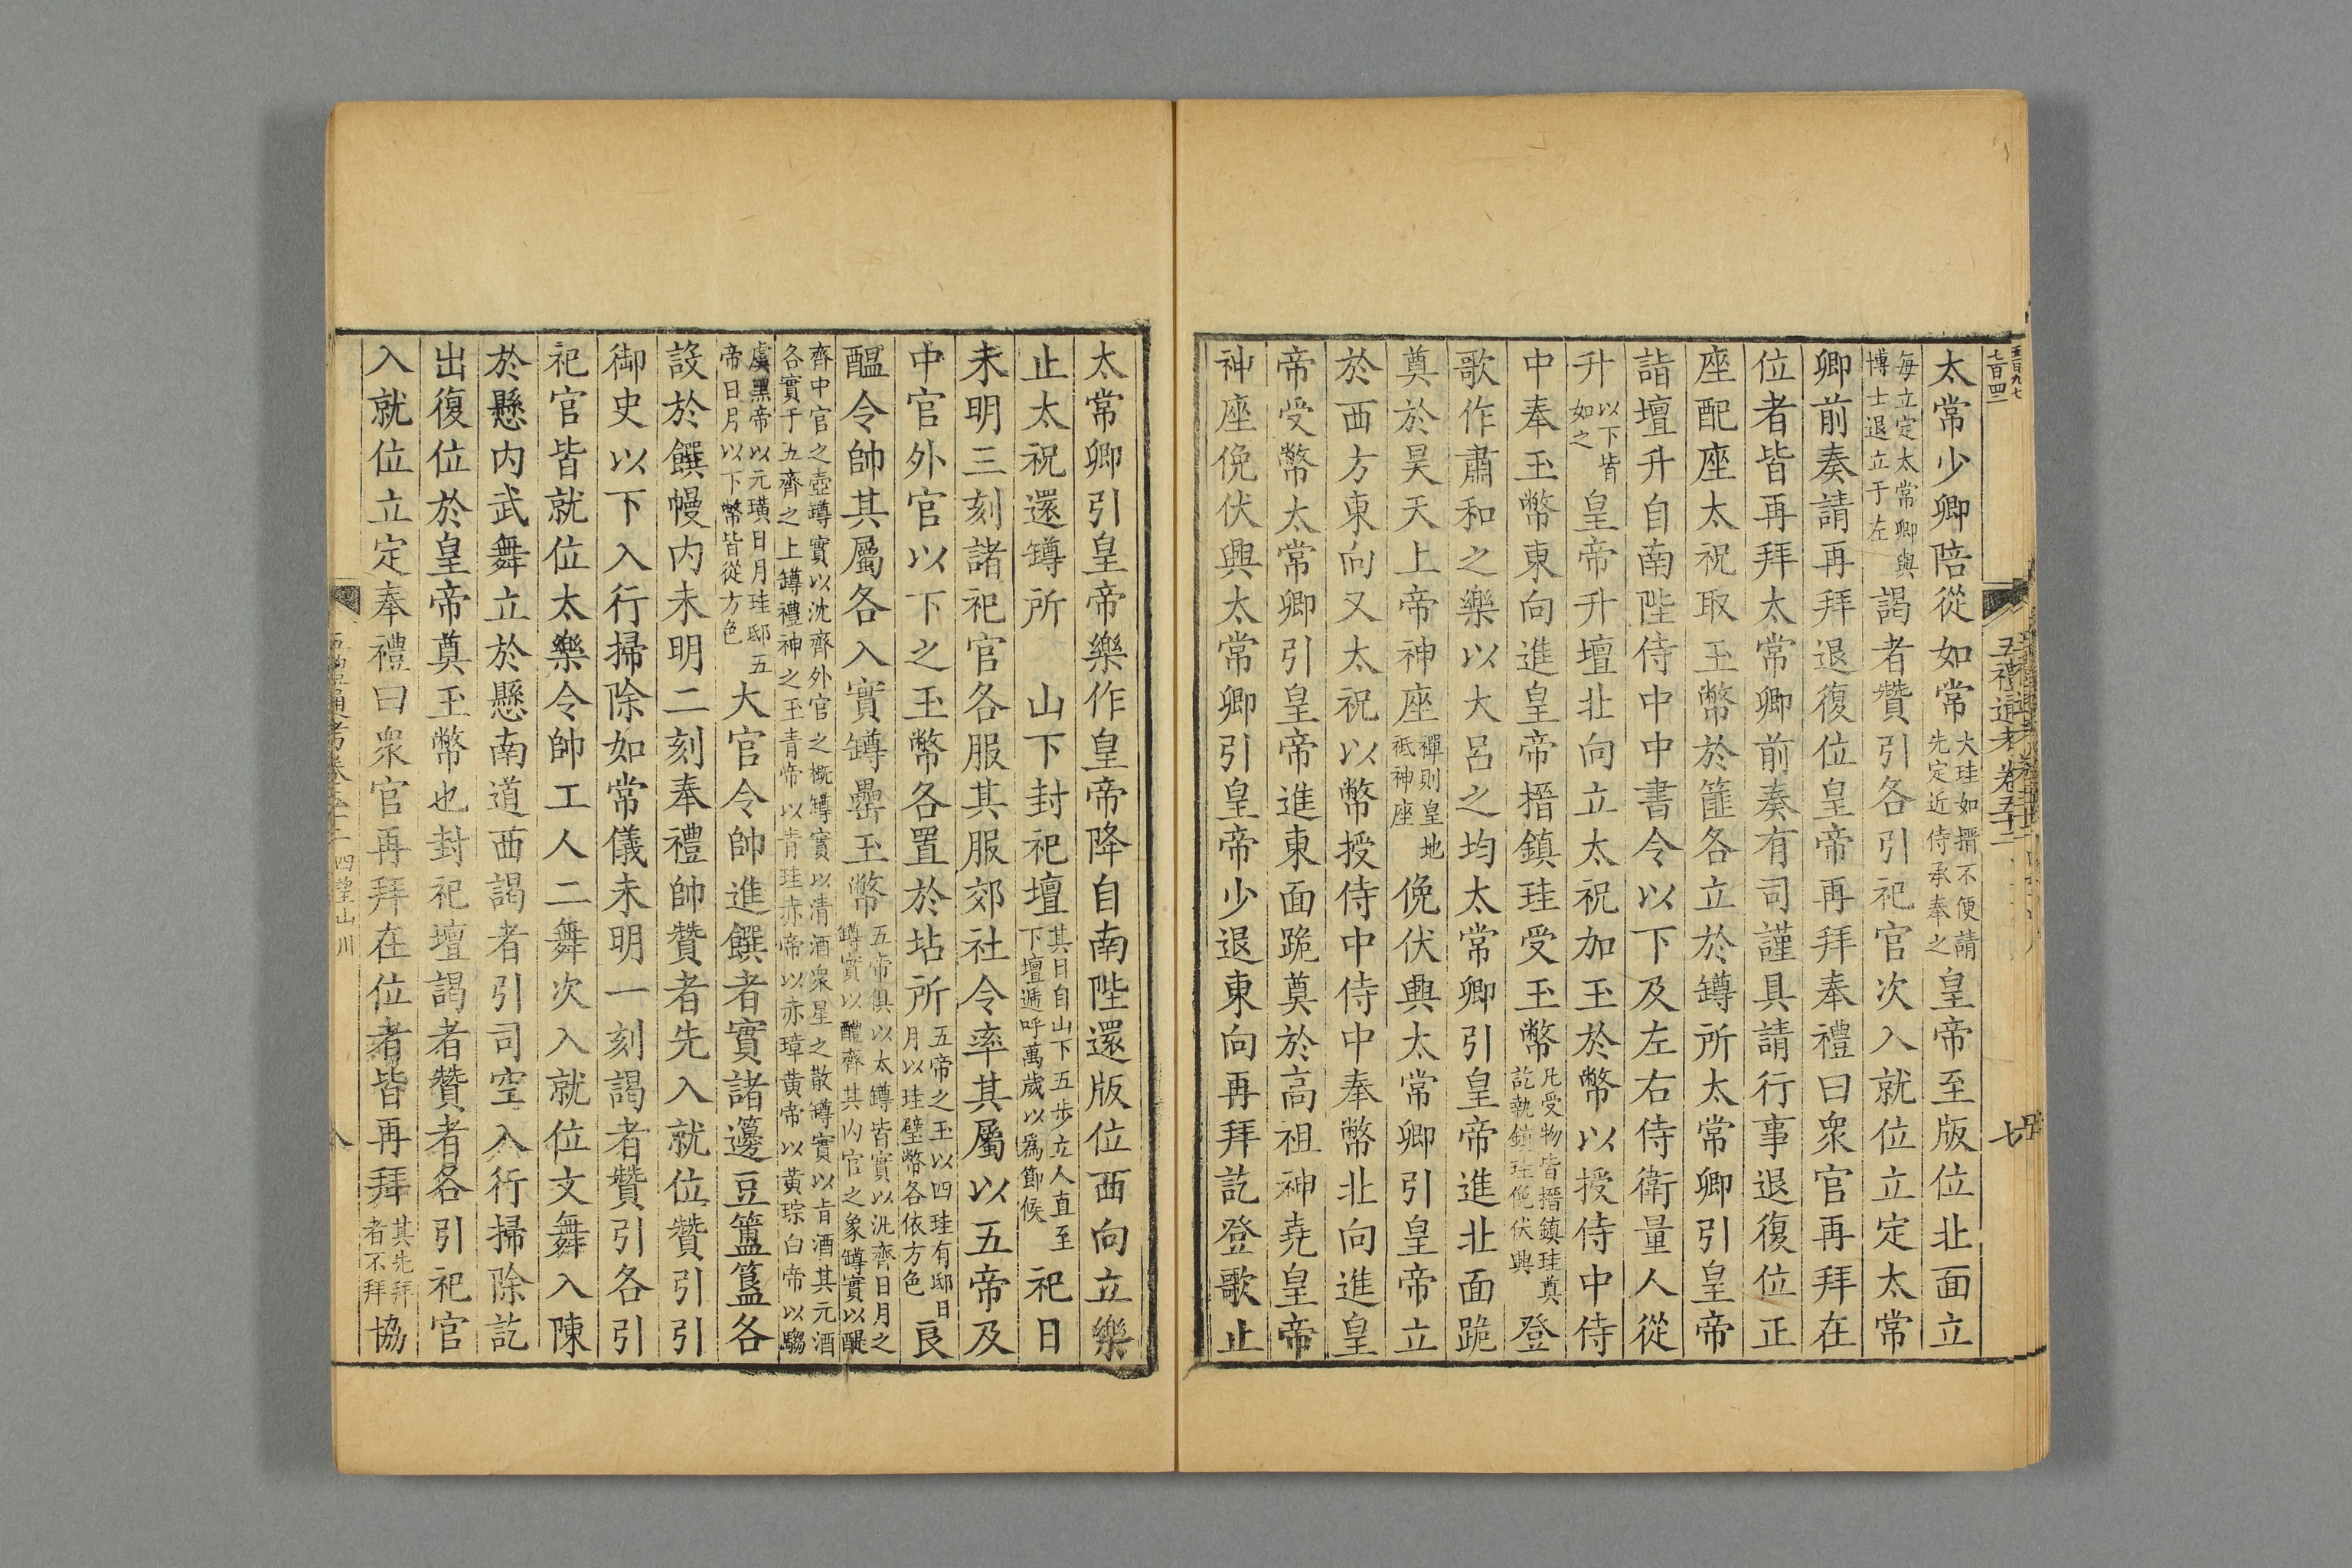 五禮通考卷五十二
七
太常少卿陪從如常大珪如搢不便請先定近侍承奉之皇帝至版位北面立
每立定太常卿與博士退立于左謁者贊引各引祀官次入就位立定太常
卿前奏請再拜退復位皇帝再拜奉禮曰衆官再拜在
位者皆再拜太常卿前奏有司謹具請行事退復位正
座配座太祝取玉幣於篚各立於罇所太常卿引皇帝
詣壇升自南陛侍中中書令以下及左右侍衛量人從
升以下皆如之皇帝升壇北向立太祝加玉於幣以授侍中侍
中奉玉幣東向進皇帝搢鎮珪受玉幣凡受物皆搢鎮珪奠訖執鎮珪俛伏興登
歌作肅和之樂以大呂之均太常卿引皇帝進北面跪
奠於昊天上帝神座禪則皇地祇神座俛伏興太常卿引皇帝立
於西方東向又太祝以幣授侍中侍中奉幣北向進皇
帝受幣太常卿引皇帝進東面跪奠於高祖神堯皇帝
神座俛伏興太常卿引皇帝少退東向再拜訖登歌止
太常卿引皇帝樂作皇帝降自南陛還版位西向立樂
止太祝還罇所 山下封祀壇其日自山下五步立人直至下壇遞呼萬歲以爲節候祀日
未明三刻諸祀官各服其服郊社令率其屬以五帝及
中官外官以下之玉幣各置於坫所五帝之玉以四珪有邸日月以珪璧幣各依方色良
醖令帥其屬各入實罇罍玉幣五帝俱以太罇皆實以汎齊日月之罇實以醴齊其內官之象罇實以醍
齊中官之壺罇實以沈齊外官之概罇實以清酒衆星之散罇實以旨酒其元酒各實于五齊之上罇禮神之玉青帝以青珪赤帝以赤璋黃帝以黃琮白帝以騶
虞黑帝以元璜日月珪邸五帝日月以下幣皆從方色大官令帥進饌者實諸籩豆簠簋各
設於饌幔内未明二刻奉禮帥贊者先入就位贊引引
御史以下入行掃除如常儀未明一刻謁者贊引各引
祀官皆就位太樂令帥工人二舞次入就位文舞入陳
於懸内武舞立於懸南道西謁者引司空入行掃除訖
出復位於皇帝奠玉幣也封祀壇謁者贊者各引祀官
入就位立定奉禮曰衆官再拜在位者皆再拜其先拜者不拜協
四望山川